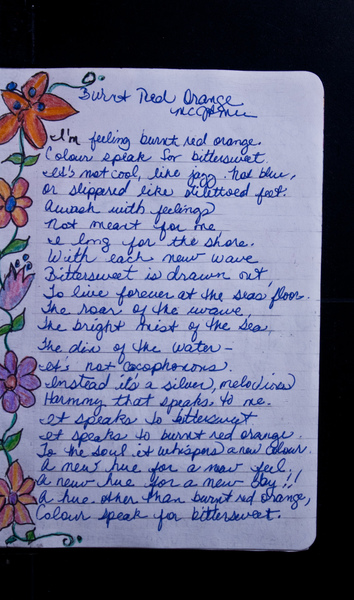 Burnt Red Orange
I'm feeling burnt red orange.
Colour speak for bittersweet.
It's not cool, like jazz. Not blue,
or slippered like feet.
Awash with feelings
Not meant for me
I long for the shore.
With each new wave
Bittersweet is drawn out,
To live forever at the seas floor.
The roar of the wave,
The bright mist of the sea
The din of the water –
It's not cacophonous.
Instead it's a silver, melodious
Harmony that speaks to me.
It speaks to bittersweet
It speaks to burnt red orange.
To the soul it whispers a new colour.
A new hue for a new feel.
A new hue for a new day!!
A hue other than burnt red orange,
Colour speak for bittersweet.